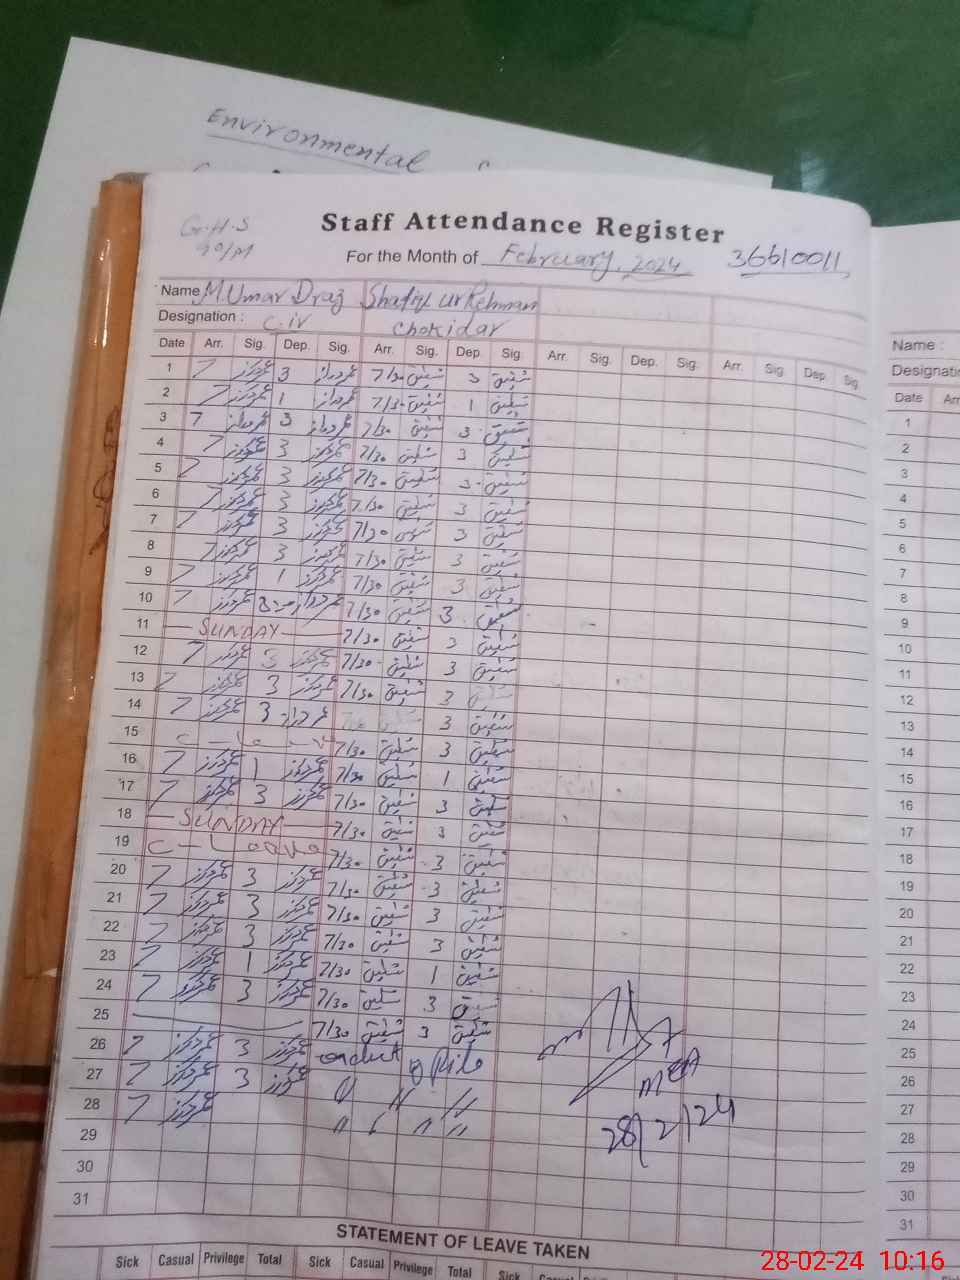 Environmental
G.H.S
Staff Attendance Register
For the Month of February, 2024 36610011
Name M.Umar Draz Shafiq ur Rehman
Designation : C.iv Chokidar
Date Arr. Sig. Dep. Sig. Arr. Sig. Dep. Sig. Arr. Sig. Dep. Sig. Arr. Sig. Dep. Sig.
1 7 عمردراز 3 عمردراز 7/30 شفیق 3 شفیق
2 7 عمردراز 1 عمردراز 7/30 شفیق 1 شفیق
3 7 عمردراز 3 عمردراز 7/30 شفیق 3 شفیق
4 7 عمردراز 3 عمردراز 7/30 شفیق 3 شفیق
5 7 عمردراز 3 عمردراز 7/30 شفیق 3 شفیق
6 7 عمردراز 3 عمردراز 7/30 شفیق 3 شفیق
7 7 عمردراز 3 عمردراز 7/30 شفیق 3 شفیق
8 7 عمردراز 3 عمردراز 7/30 شفیق 3 شفیق
9 7 عمردراز 1 عمردراز 7/30 شفیق 3 شفیق
10 7 عمردراز عمردراز 7/30 شفیق 3 شفیق
11 SUNDAY 7/30 شفیق 3 شفیق
12 7 عمردراز 3 عمردراز 7/30 شفیق 3 شفیق
13 7 عمردراز 3 عمردراز 7/30 شفیق 3 شفیق
14 7 عمردراز 3 عمردراز شفیق 3 شفیق
15 7/30 شفیق 3 شفیق
16 7 عمردراز 1 عمردراز 7/30 شفیق 1 شفیق
17 7 عمردراز 3 عمردراز 7/30 شفیق 3 شفیق
18 SUNDAY 7/30 شفیق 3 شفیق
19 C-Leave 7/30 شفیق 3 شفیق
20 7 عمردراز 3 عمردراز 7/30 شفیق 3 شفیق
21 7 عمردراز 3 عمردراز 7/30 شفیق 3 شفیق
22 7 عمردراز 3 عمردراز 7/30 شفیق 3 شفیق
23 7 عمردراز 1 عمردراز 7/30 شفیق 1 شفیق
24 7 عمردراز 3 عمردراز 7/30 شفیق 3 شفیق
25 7/30 شفیق 3 شفیق
26 7 عمردراز 3 عمردراز
27 7 عمردراز 3 عمردراز " " "
28 7 عمردراز " " " "
29
30
31
MEA
28/2/24
STATEMENT OF LEAVE TAKEN
Sick Casual Privilege Total Sick Casual Privilege Total Sick Casual
Name :
Date
1
2
3
4
5
6
7
8
9
10
11
12
13
14
15
16
17
18
19
20
21
22
23
24
25
26
27
28
29
30
31
28-02-24 10:16